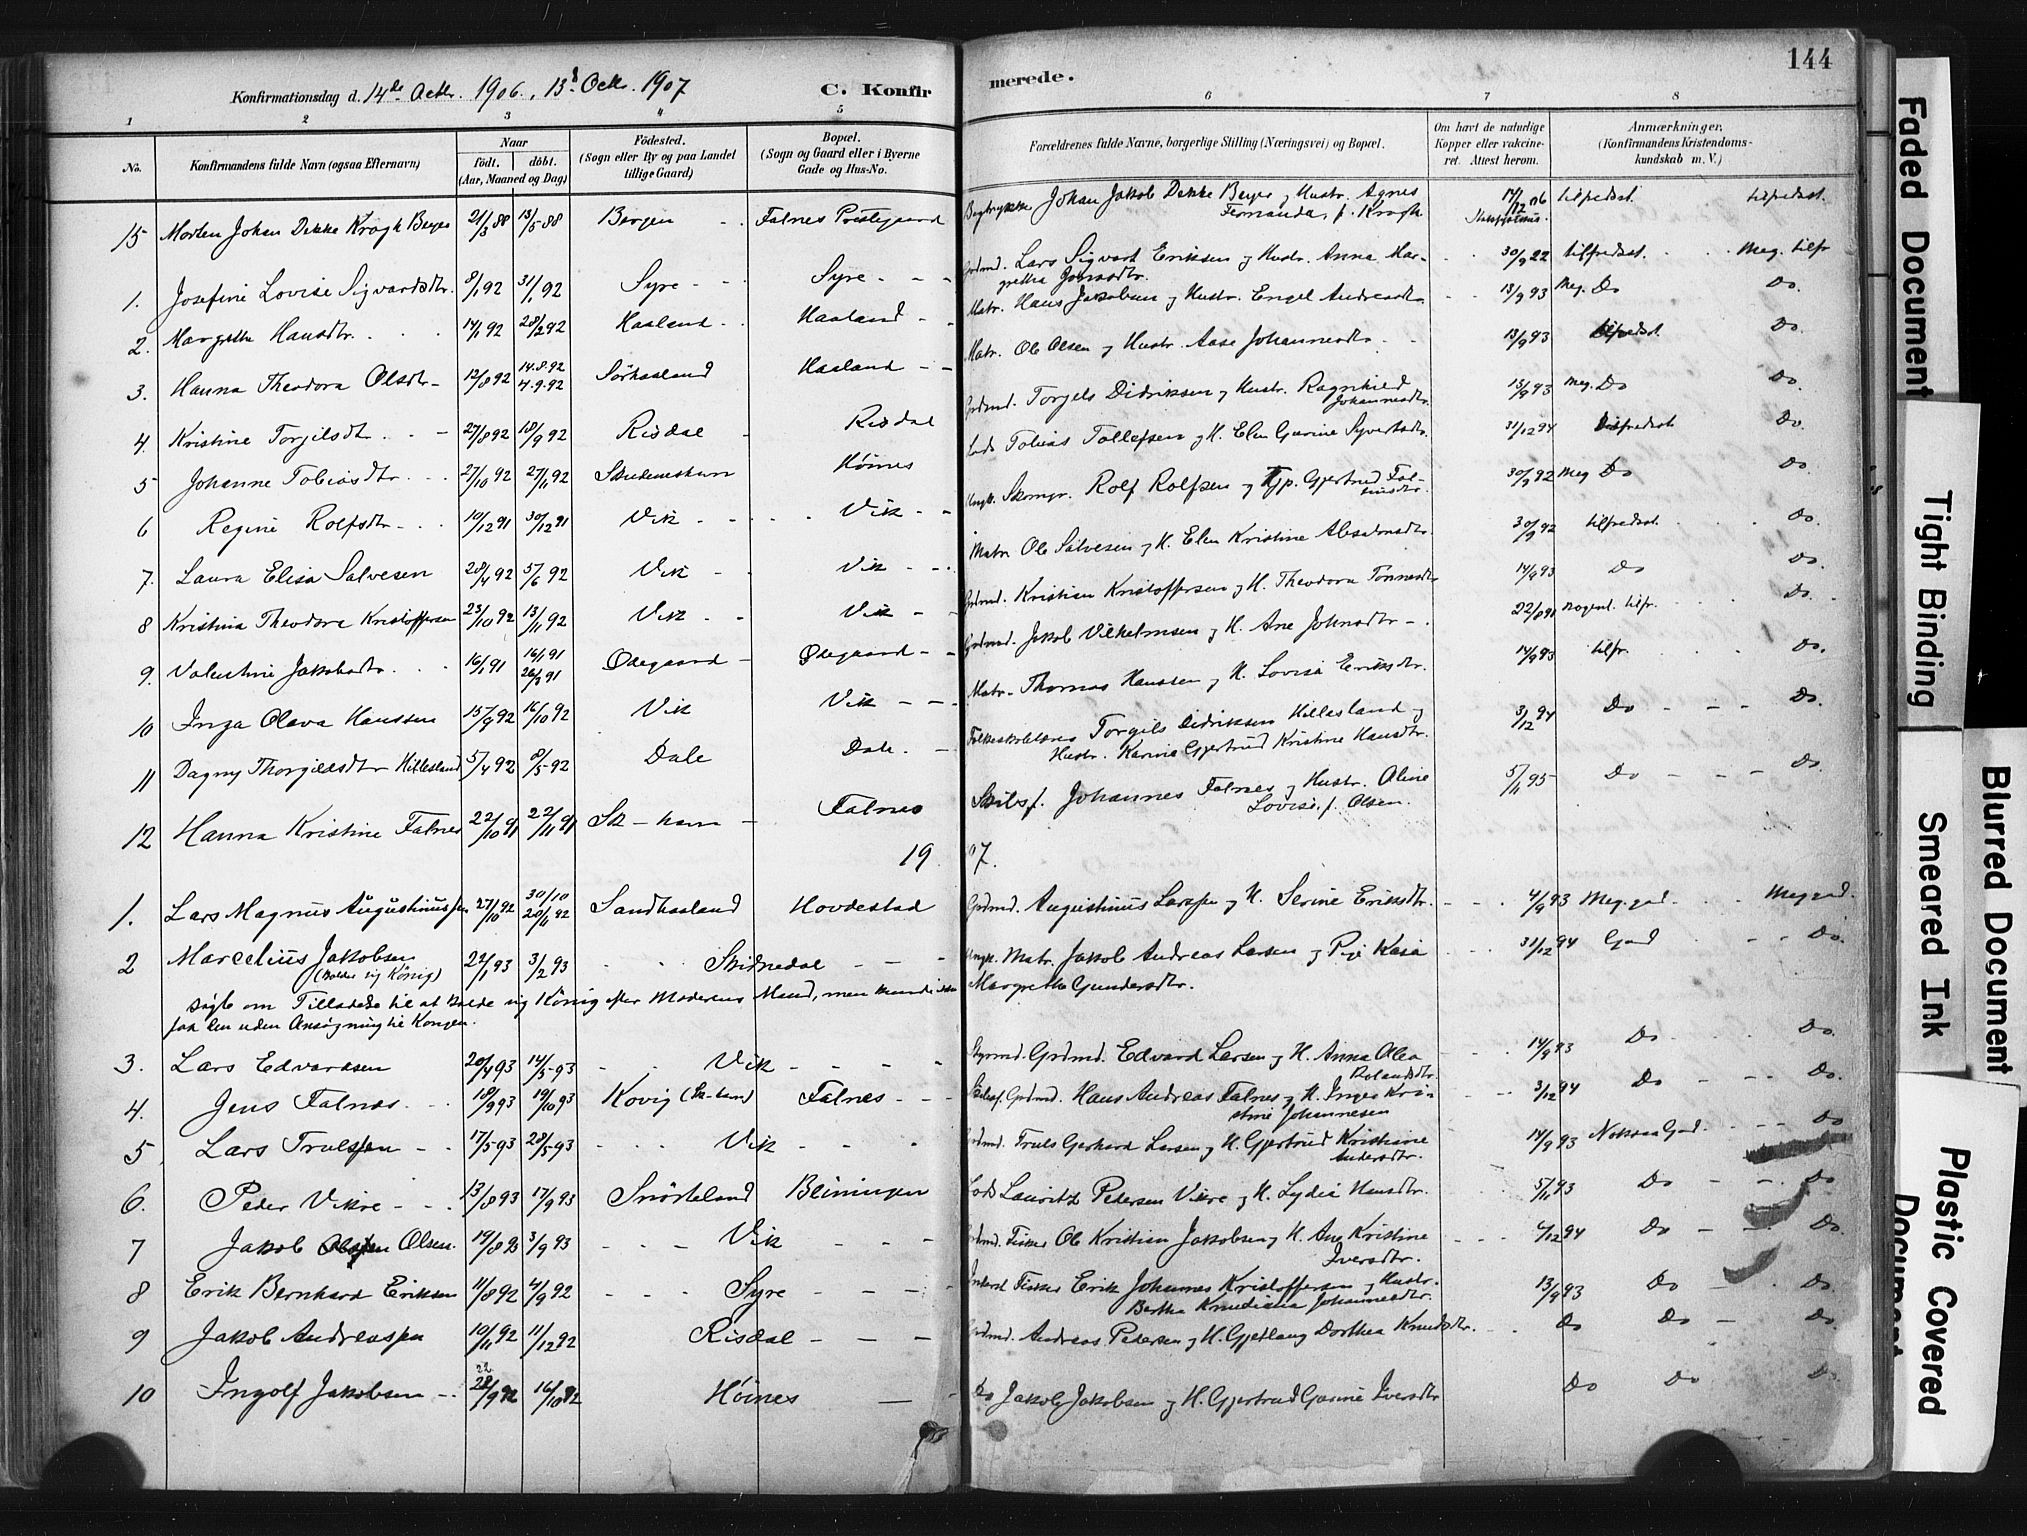 144
Konfirmationsdag d. 14de Octbr. 1906, 13d Octbr. 1907 C. Konfirmerede.
1 2 3 4 5 6 7 8
No. Konfirmandens fulde Navn (ogsaa Efternavn) Naar födt. döbt. (Aar, Maaned og Dag) Födested. (Sogn eller By og paa Landet tillige Gaard) Bopæl. (Sogn og Gaard eller i Byerne Gade og Hus-No. Forældrenes fulde Navne, borgerlige Stilling (Næringsvei) og Bopæl. Om havt de naturlige Kopper eller vaccineret. Attest herom. Anmærkninger. (Konfirmandens Kristendomskundskab m. V.)
15 Morten Johan Dekke Krogh Beyer 21/3 88 13/5 88 Bergen Falnes Prestegaard Bogtrykker Johan Jakob Dekke Beyer og Hustr. Agnes Fernanda, f. Krogh tilfredsst. tilfredsst.
1. Josefine Lovise Sigvardsdtr. 8/1 92 31/1 92 Syre Syre Grdmd. Lars Sigvart Eriksen og Hustr. Anna Margretha Jonasdtr. tilfredsst. Meg. tilfr
2. Margrethe Hansdtr. 14/1 92 28/2 92 Haaland Haaland Matr. Hans Jakobsen og Hustr. Engel Andreasdtr. 13/9 93 Meg. Do Do.
3. Hanna Theodora Olsdtr 12/8 92 14.8.92 4.9.92 Sørhaaland Haaland Matr. Ole Olsen og Hustr. Aase Johannesdtr 13/9 93 tilfredsst. Do
4 Kristine Torgilsdtr. 27/8 92 18/9 92 Risdal Risdal Grdmd. Torgels Didriksen og Hustr. Ragnhild Johannesdtr. 13/9 93 Meg. Do Do.
5 Johanne Tobiasdtr. 27/10 92 27/11 92 Skudeneshavn Høines Lods Tobias Tollefsen og H. Elen Gurine Syvertsdtr. 31/12 94 tilfredsst Do.
6 Regine Rolfsdtr. 10/12 91 30/12 91 Vik Vik Ungk. Skomgr. Rolf Rolfsen og Pp. Gjertrud Meg Do Do.
7. Laura Elisa Salvesen 28/4 92 5/6 92 Vik Vik Matr. Ole Salvesen og H. Elen Kristine tilfredsst. Do.
8 Kristina Theodora Kristoffersen 23/10 92 13/11 92 Vik Vik Grdmd. Kristian Kristoffersen og H. Theodora Tønnesdtr 14/9 93 Do Do.
9. Valentine Jakobsdtr. 16/1 91 Ødegaard Ødegaard Grdmd. Jakob Vilhelmsen og H. Ane Johnsdtr tilfr. Do.
10 Inga Olava Hanssen 15/9 92 16/10 92 Vik Vik Matr. Thomas Hanssen og H. Lovise Eriksdtr. 14/9 93 tilfr. Do.
11 Dagny Thorgilsdtr Hillesland 5/4 92 8/5 92 Dale Dale. Folkeskolelærer Torgils Didriksen Hillesland og Hustr. Karina Gjertrud Kristine Hansdtr. 3/12 94 Do Do.
12 Hanna Kristine Falnes 22/10 91 22/11 91 Sk-havn Falnes Skibsf. Johannes Falnes og Hustr. Oline Lovise, f. Olsen. 5/11 95 Do Do.
1907.
1. Lars Magnus Augustinussen 27/10 92 30/10 20/11 92 Sandhaaland Hovdestad Grdmd. Augustinus Larssen og H. Serine Eriksdtr. 4/9 93 Meg. god. Meg god.
2 Marcelius Jakobsen (kalder sig König) 22/1 93 3/2 93 Skidnedal Ungk. Matr. Jakob Andreas Larsen og Pige Kasia Margrethe Gundersdtr. 31/12 94 God Do.
søgte om Tilladelse til at kalde sig König efter Moderens Mand, men kunde ikke
faa den uden Ansøgning til Kongen.
3. Lars Edvardsen 20/4 93 14/5 93 Vik Grdmd. Edvard Larsen og H. Anna Olea 14/9 93 Do Do.
4. Jens Falnes 18/9 93 19/10 93 Kovig (Sk-havn) Falnes Skibsf. Grdmd. Hans Andreas Falnes og H. Inger Kristine Johannesen 3/12 94 Do Do.
5 Lars Trulssen 17/5 93 28/5 93 Vik Grdmd. Truls Gerhard Larsen og H. Gjertrud Kristiane Andersdtr. 14/9 93 Nokså God Do
6. Peder Vikre 13/8 93 17/9 93 Snørteland Blimingen Lods Lauritz Pedersen Vikre og H. Lydia Hansdtr. 5/11 93 Do Do
7 Jakob Olsen. 19/8 93 3/9 93 Vik Grdmd. Fisker Ole Kristian Jakobsen og H. Ane Kristine Iversdtr. Do Do.
8 Erik Bernhard Eriksen 11/8 92 4/9 92 Syre Fisker Erik Johannes Kristoffersen og Hustr. Bertha Knudiana Johannesdtr. 13/9 93 Do Do.
9 Jakob Andreassen 10/11 92 11/12 92 Risdal Grdmd. Andreas Pedersen og H. Gjetlaug Dorthea Knudsdtr. Do Do Do.
10 Ingolf Jakobsen 22/9 92 16/10 92 Høines Do Jakob Jakobsen og H. Gjertrud Gurine Iversdtr Do Do Do
Faded Document
Tight Binding
Blurred Document
Smeared Ink
Plastic Covered
Document